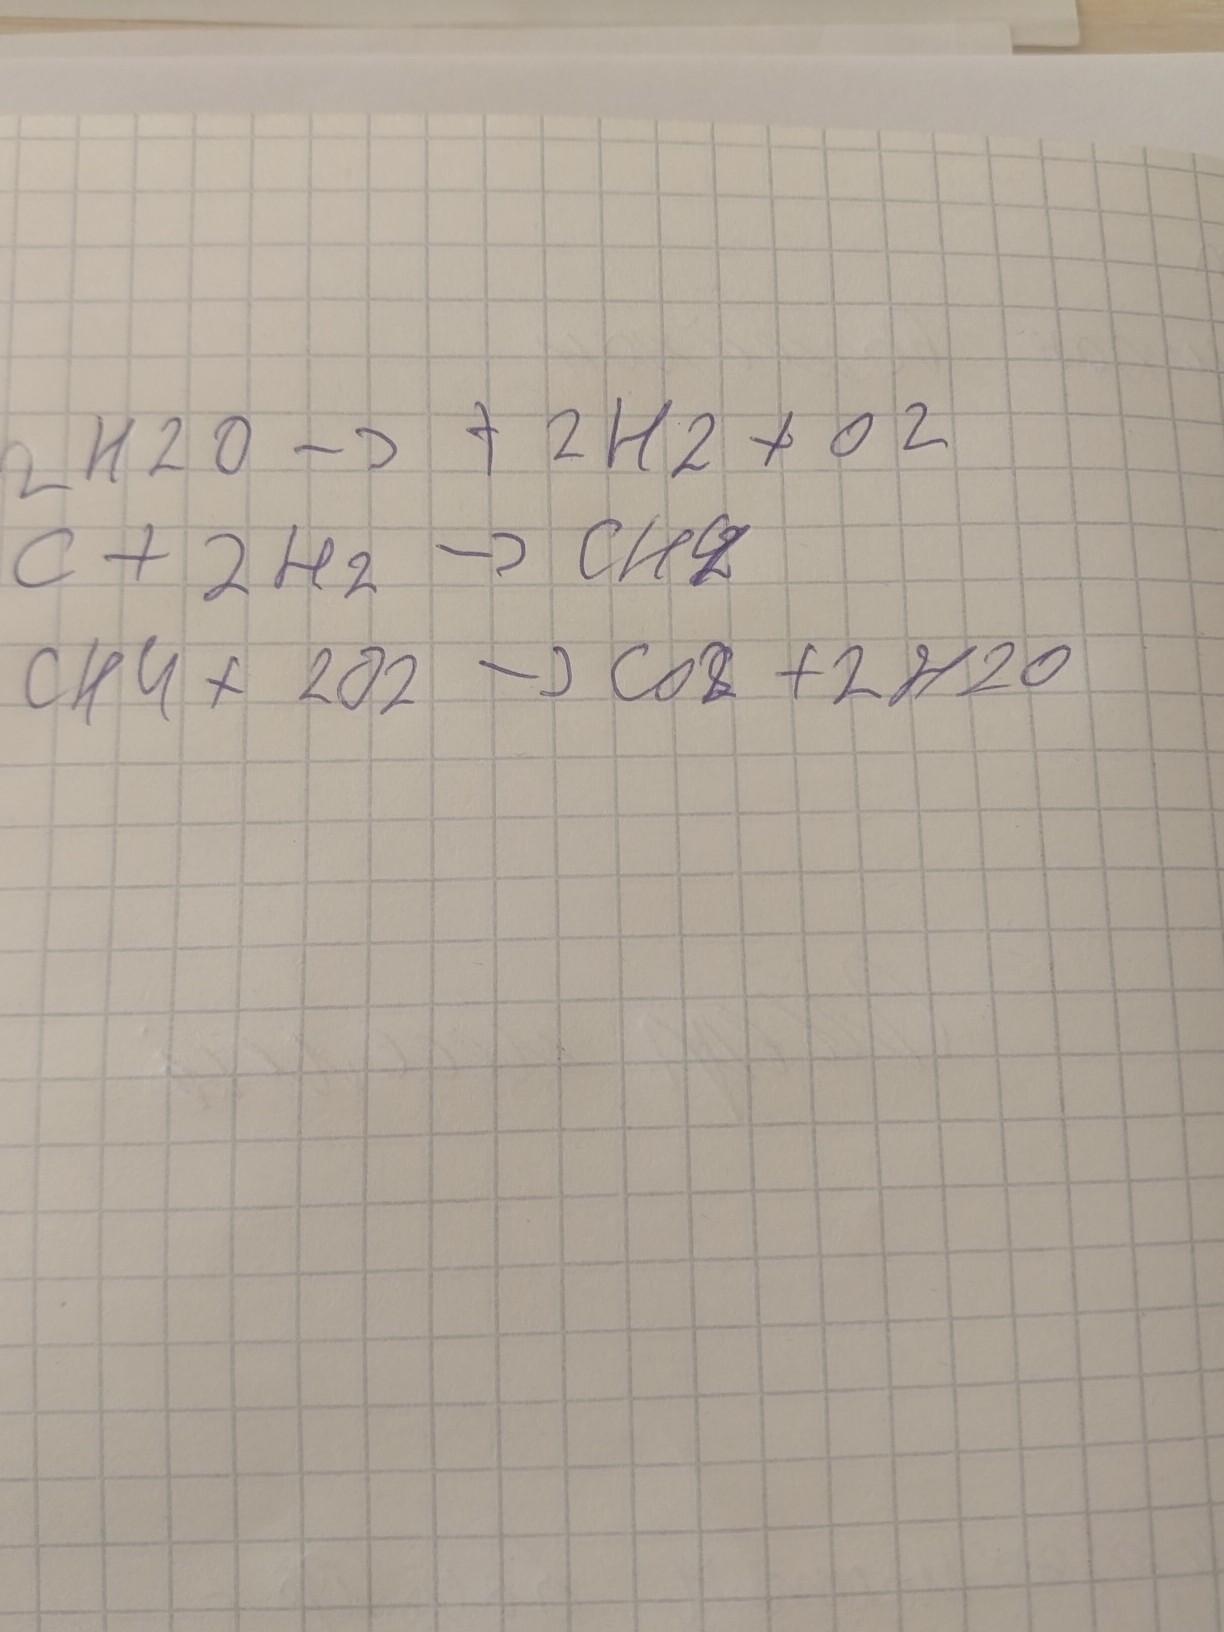 2H2O -> + 2H2 + O2
C + 2H2 -> CH2
CH4 + 2O2 -> CO2 + 2H2O